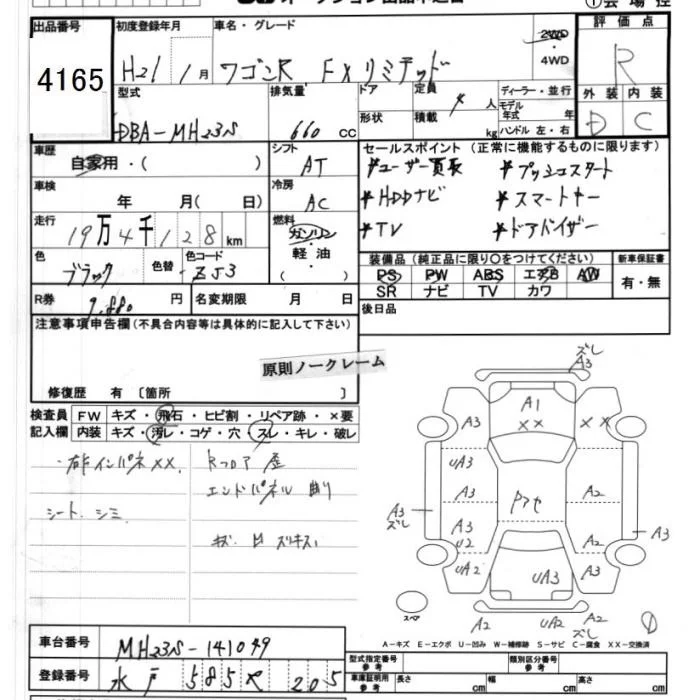 出品番号 初度登録年月 車名・グレード 評価点
4165 H21 1月 ワゴンR FXリミテッド 2WD・4WD R
型式 排気量 ドア 定員 人 ディーラー・並行 外装 内装
DBA-MH23S 660 cc 形状 積載 kg モデル年式 年 D C
ハンドル 左・右
車歴 シフト セールスポイント(正常に機能するものに限ります)
自家用・( ) AT *ユーザー買長 *プッシュスタート
車検 冷房 *HDDナビ *スマートキー
年 月( 日) AC *TV *ドアバイザー
走行 燃料
19万4千128km ガソリン・軽油( )
色 色替 色コード 装備品(純正品に限り〇をつけてください) 新車保証書
ブラック ZJ3 PS PW ABS エアB AW 有・無
SR ナビ TV カワ
R券 9,880円 名変期限 月 日 後日品
注意事項申告欄(不具合内容等は具体的に記入して下さい)
原則ノークレーム
修復歴 有〔箇所 〕
検査員 FW キズ・飛石・ヒビ割・リペア跡・×要
記入欄 内装 キズ・汚レ・コゲ・穴・スレ・キレ・破レ
右Fインパネ××. Rフロア 歪
エンドパネル 曲り
シート シミ
キズ・凹
ズレ
A3
A1
××
A3 ××
UA3
A3 A2
A3
ズレ
A3 A2 A3
U2
UA2 UA3 A3
スペア A2 UA2 A2
ズレ
A-キズ E-エクボ U-凹み W-補修跡 S-サビ C-腐食 XX-交換済
車台番号 MH23S-141049
登録番号 水戸 585 205
型式指定番号 参考 類別区分番号 参考
車庫証明用 参考 長さ cm 幅 cm 高さ cm